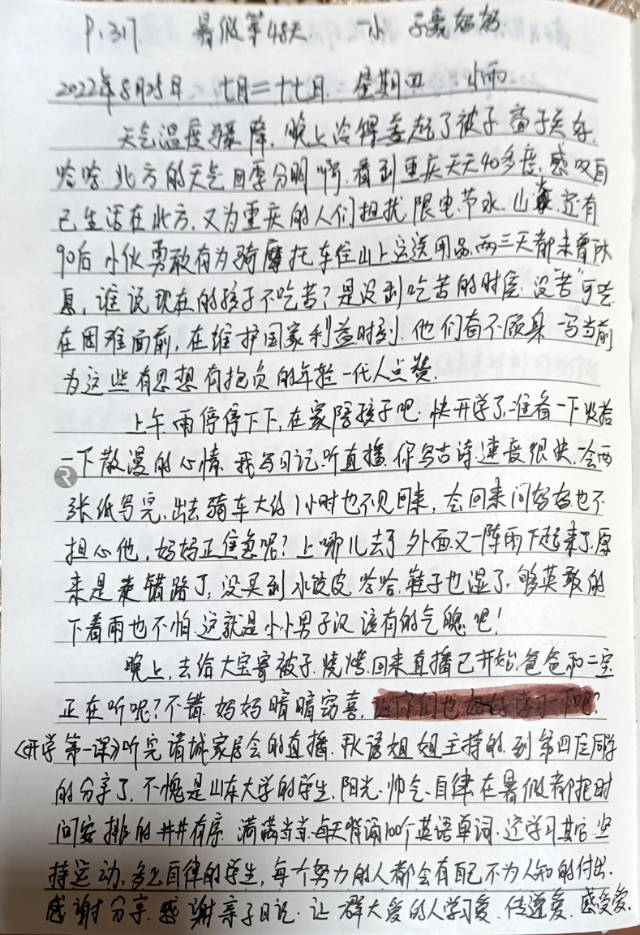 P.317 暑假第48天 一小 子豪妈妈
2022年8月25日 七月二十七日 星期四 小雨
天气温度骤降,晚上冷得盖起了被子,窗子关好.
哈哈.北方的天气四季分明啊.看到重庆天天40多度,感叹自
己生活在北方,又为重庆的人们担扰,限电.节水.山火.还有
90后小伙勇敢有为骑摩托车往山上运送用品,两三天都未曾休
息,谁说现在的孩子不吃苦?是没到吃苦的时侯,没"苦"可吃
在困难面前,在维护国家利益时刻.他们奋不顾身一马当前
为这些有思想有抱负的年轻一代人点赞.
上午雨停停下下,在家陪孩子吧.快开学了.准备一下收拾
一下散漫的心情.我写日记.听直播.你写古诗速度很快.一会两
张纸写完,出去骑车大约1小时也不见回来,会回来问妈妈也不
担心他,妈妈正着急呢?上哪儿去了外面又一阵雨下起来了.原
来是走错路了,没买到水饺皮,哈哈,鞋子也湿了,够英敢的
下着雨也不怕.这就是小小男子汉该有的气魄吧!
晚上,去给大宝寄被子.烧烤.回来直播已开始.爸爸和二宝
正在听呢?不错.妈妈暗暗窃喜.
《开学第一课》听完诸城家长会的直播.秋语姐姐主持的,到第四位同学
的分享了,不愧是山东大学的学生,阳光、帅气、自律.在暑假都把时
间安排的井井有序.满满当当.每天背诵100个英语单词.还学习其它.坚
持运动,多么自律的学生,每个努力的人都会有自己不为人知的付出.
感谢分享.感谢亲子日记.让一群大爱的人学习爱.传递爱.感受爱.